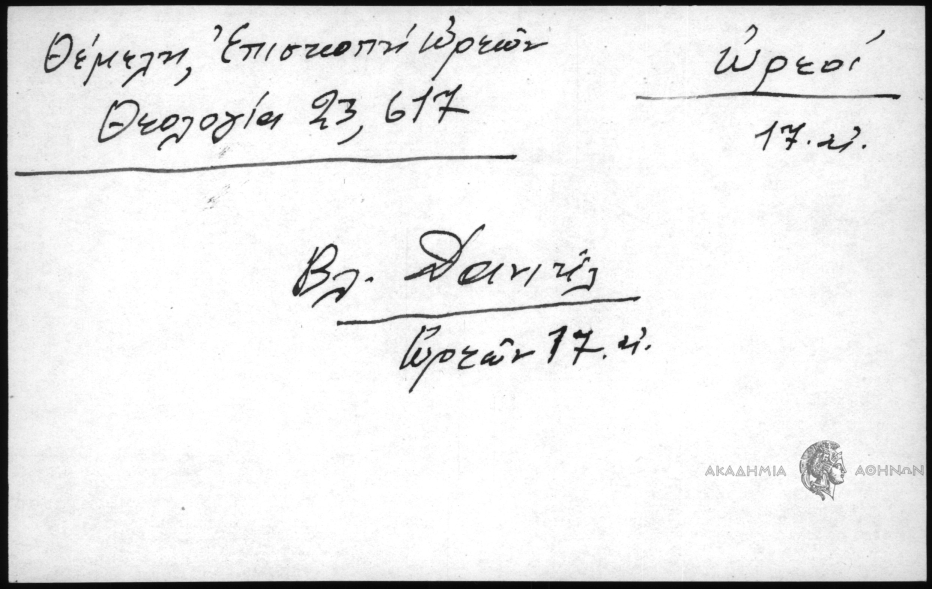 Θέμελη, Ἐπισκοπή Ὠρεῶν
Θεολογία 23, 617
Ὠρεοί
17. αἰ.
Βλ. Δανιήλ
Ὠρεῶν 17. αἰ.
ΑΚΑΔΗΜΙΑ ΑΘΗΝΩΝ